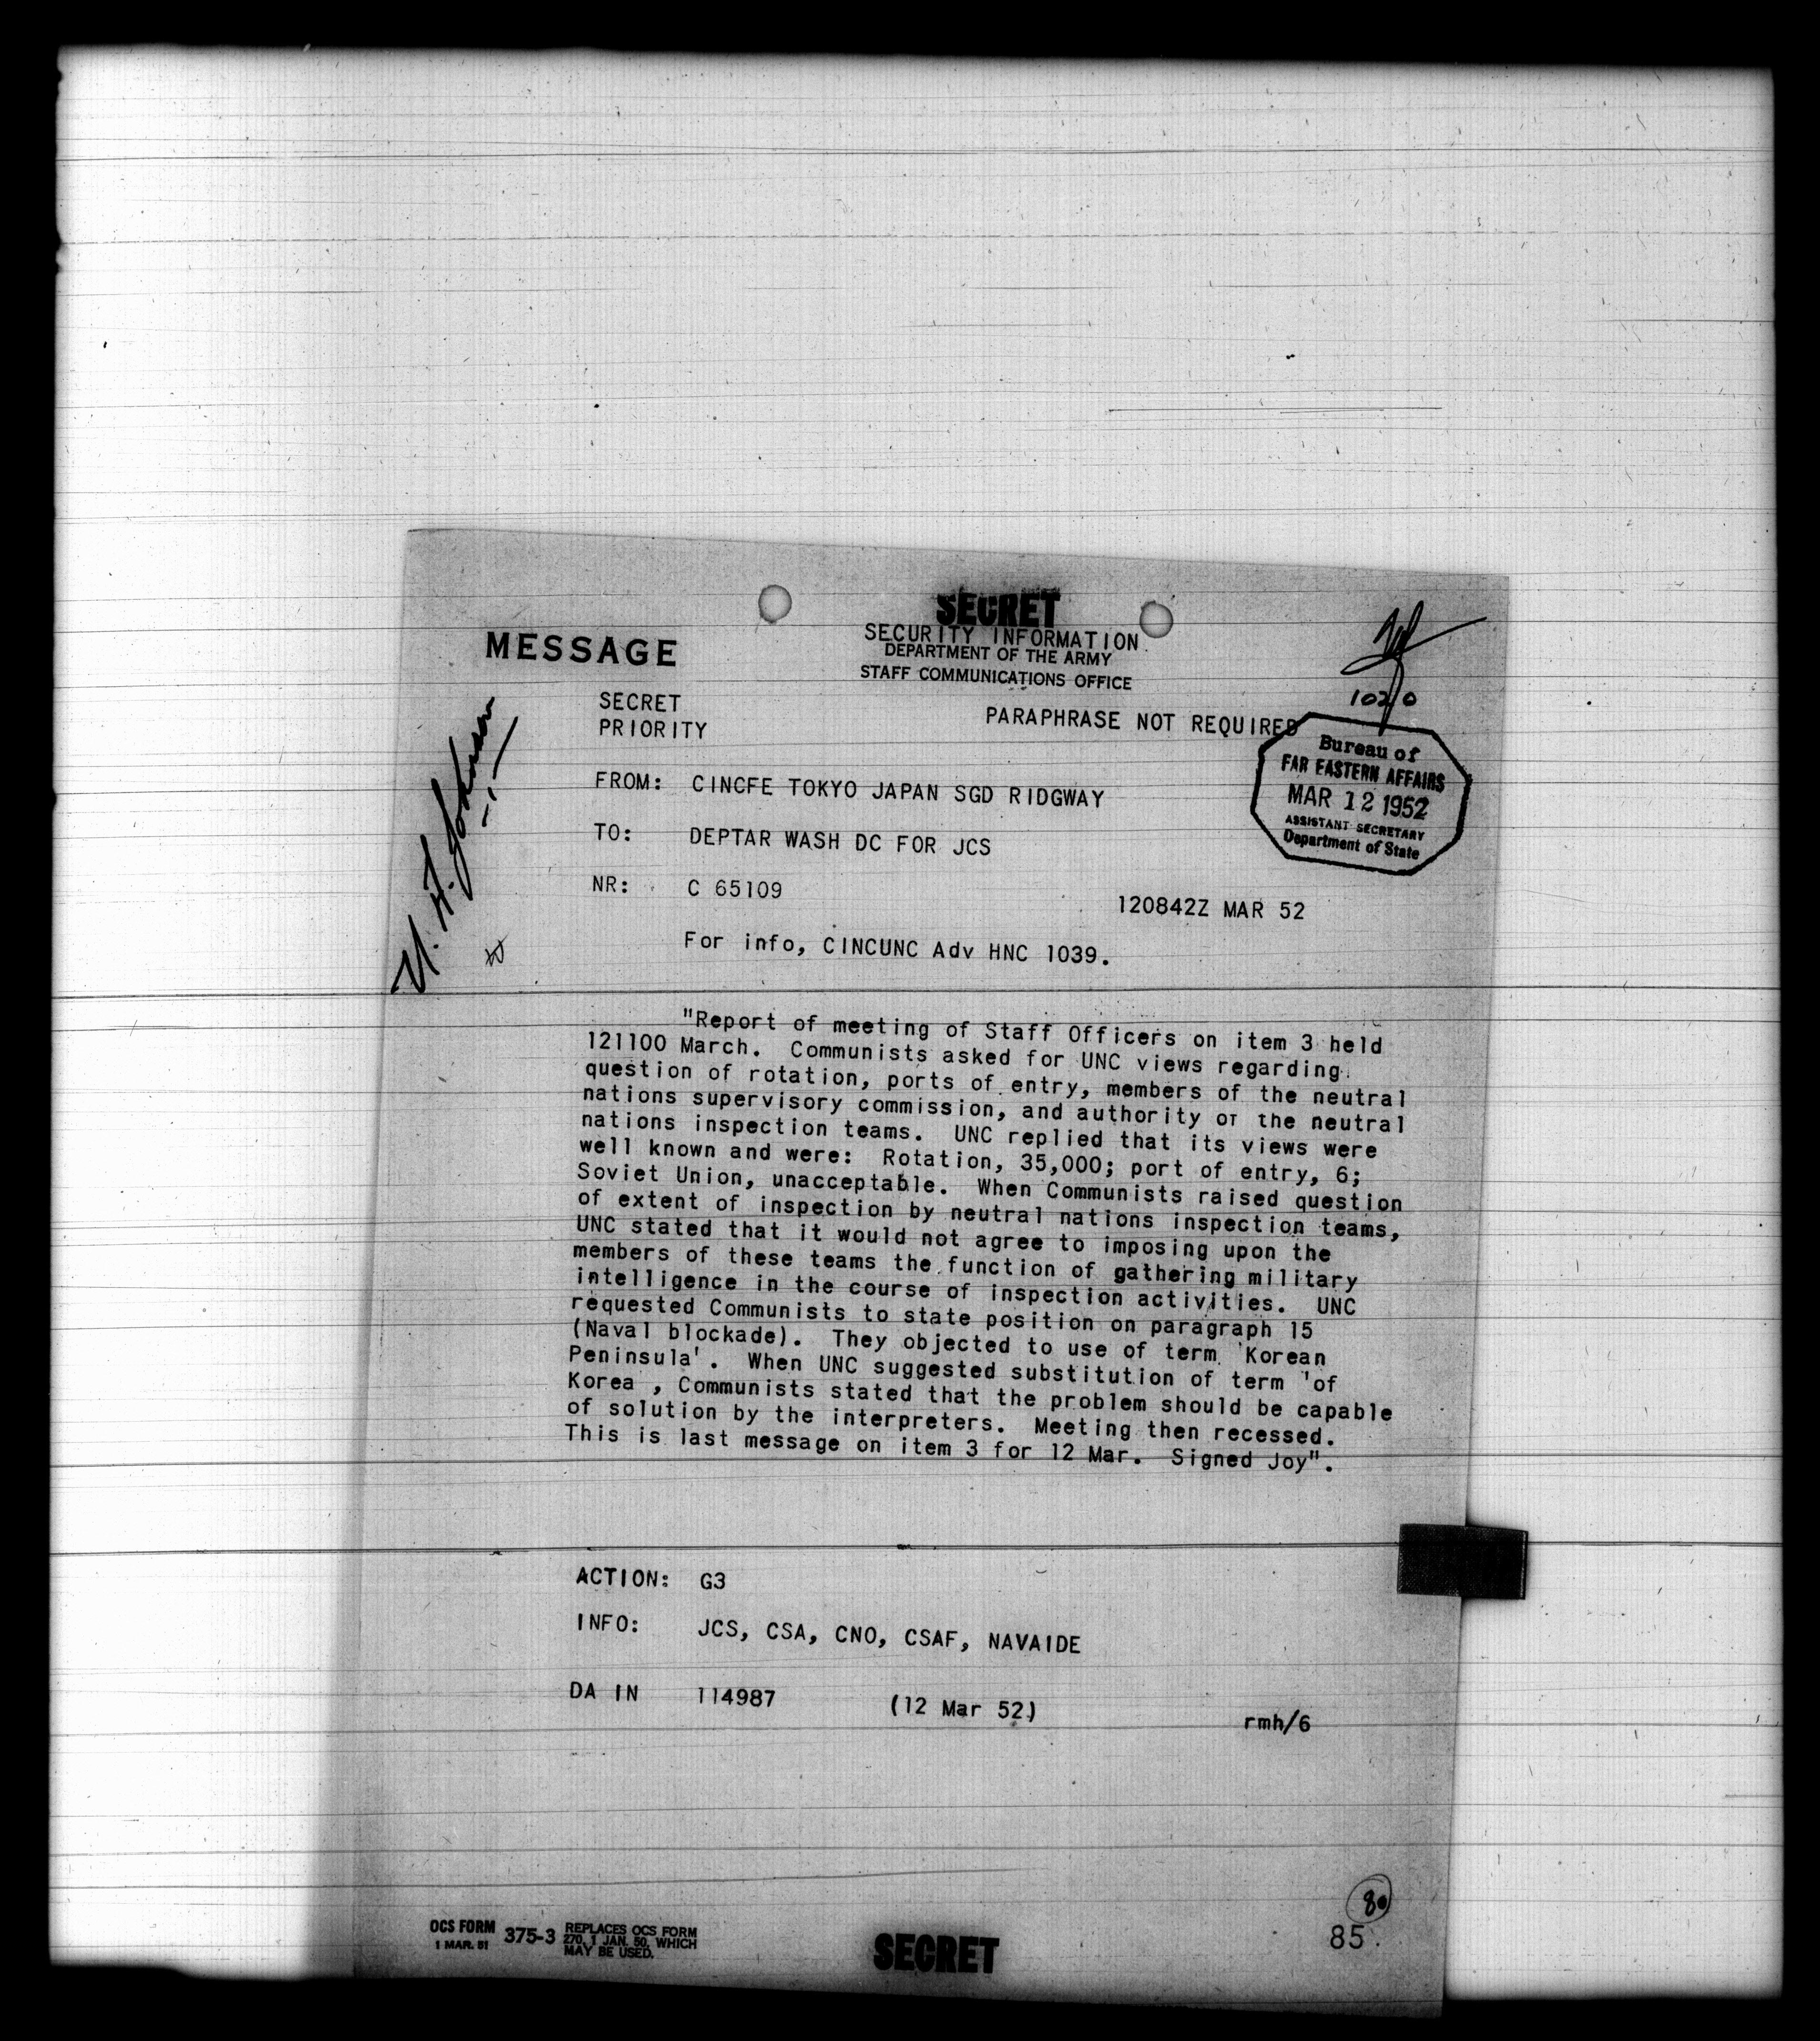 SECRET
SECURITY INFORMATION
MESSAGE
DEPARTMENT OF THE ARMY
STAFF COMMUNICATIONS OFFICE
1020
SECRET
PRIORITY
PARAPHRASE NOT REQUIRED
Bureau of
FAR EASTERN AFFAIRS
MAR 12 1952
ASSISTANT SECRETARY
Department of State
FROM: CINCFE TOKYO JAPAN SGD RIDGWAY
TO: DEPTAR WASH DC FOR JCS
NR: C 65109
120842Z MAR 52
U. A. Johnson
For info, CINCUNC Adv HNC 1039.
"Report of meeting of Staff Officers on item 3 held
121100 March. Communists asked for UNC views regarding
question of rotation, ports of entry, members of the neutral
nations supervisory commission, and authority of the neutral
nations inspection teams. UNC replied that its views were
well known and were: Rotation, 35,000; port of entry, 6;
Soviet Union, unacceptable. When Communists raised question
of extent of inspection by neutral nations inspection teams,
UNC stated that it would not agree to imposing upon the
members of these teams the function of gathering military
intelligence in the course of inspection activities. UNC
requested Communists to state position on paragraph 15
(Naval blockade). They objected to use of term 'Korean
Peninsula'. When UNC suggested substitution of term 'of
Korea , Communists stated that the problem should be capable
of solution by the interpreters. Meeting then recessed.
This is last message on item 3 for 12 Mar. Signed Joy".
ACTION: G3
INFO: JCS, CSA, CNO, CSAF, NAVAIDE
DA IN 114987 (12 Mar 52) rmh/6
80
85
OCS FORM
1 MAR. 51
375-3
REPLACES OCS FORM
270, 1 JAN. 50, WHICH
MAY BE USED.
SECRET